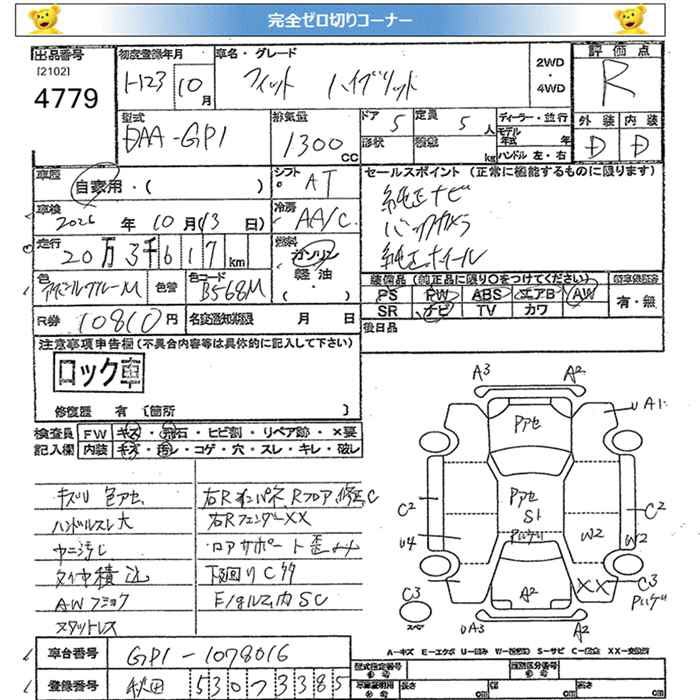 完全ゼロ切りコーナー
出品番号
[2102]
4779
初度登録年月
H23 10月
車名・グレード
フィット ハイブリット
2WD
・
4WD
評価点
R
外装 内装
D D
型式
DAA-GP1
排気量
1300 cc
ドア 5
定員 5 人
形状
積載 kg
ディーラー・並行
モデル年式 年
ハンドル 左・右
車歴
自家用・( )
シフト
AT
セールスポイント (正常に機能するものに限ります)
純正ナビ
バックカメラ
純正ホイール
車検
2026年 10月(13日)
冷房
AA/C
走行
20万3千617km
燃料
ガソリン
軽油
・( )
色
色替
色コード
B568M
装備品(純正品に限り○をつけてください)
PS PW ABS エアB AW
SR ナビ TV カワ
有・無
R券 10810円
名変通知期限 月 日
後日品
注意事項申告欄(不具合内容等は具体的に記入して下さい)
ロック車
修復歴 有 〔箇所 〕
検査員 FW キズ・飛石・ヒビ割・リペア跡・×要
記入欄 内装 キズ・汚レ・コゲ・穴・スレ・キレ・破レ
キズリ 色アセ
ハンドルスレ大
タイヤ積込
スタットレス
右Rフェンダー××
ロアサポート歪
下回りCサ
A3 A2
Pアセ
UA1
C2
Pアセ
S1
C2
U4
W2 W2
A2
××
C3
C3
スペア
UA3 A2
A=キズ E=エクボ U=凹み W=(修理跡) S=サビ C=腐食 ××=交換済
車台番号 GP1-1078016
登録番号 秋田 530 ス 3385
型式指定番号
類別区分番号
長さ cm 幅 cm 高さ cm